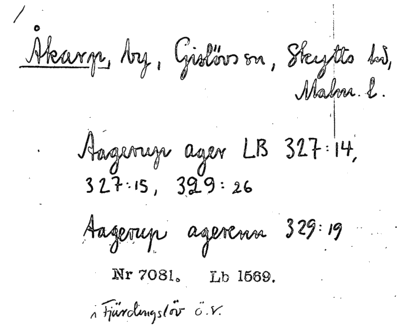 Åkarp, by, Gislövs sn, Skytts hd,
Malm. l.
Aagerup ager LB 327:14,
327:15, 329:26
Aagerup agerenn 329:19
Nr 7081. Lb 1569.
i Fjärdingslöv ö.V.